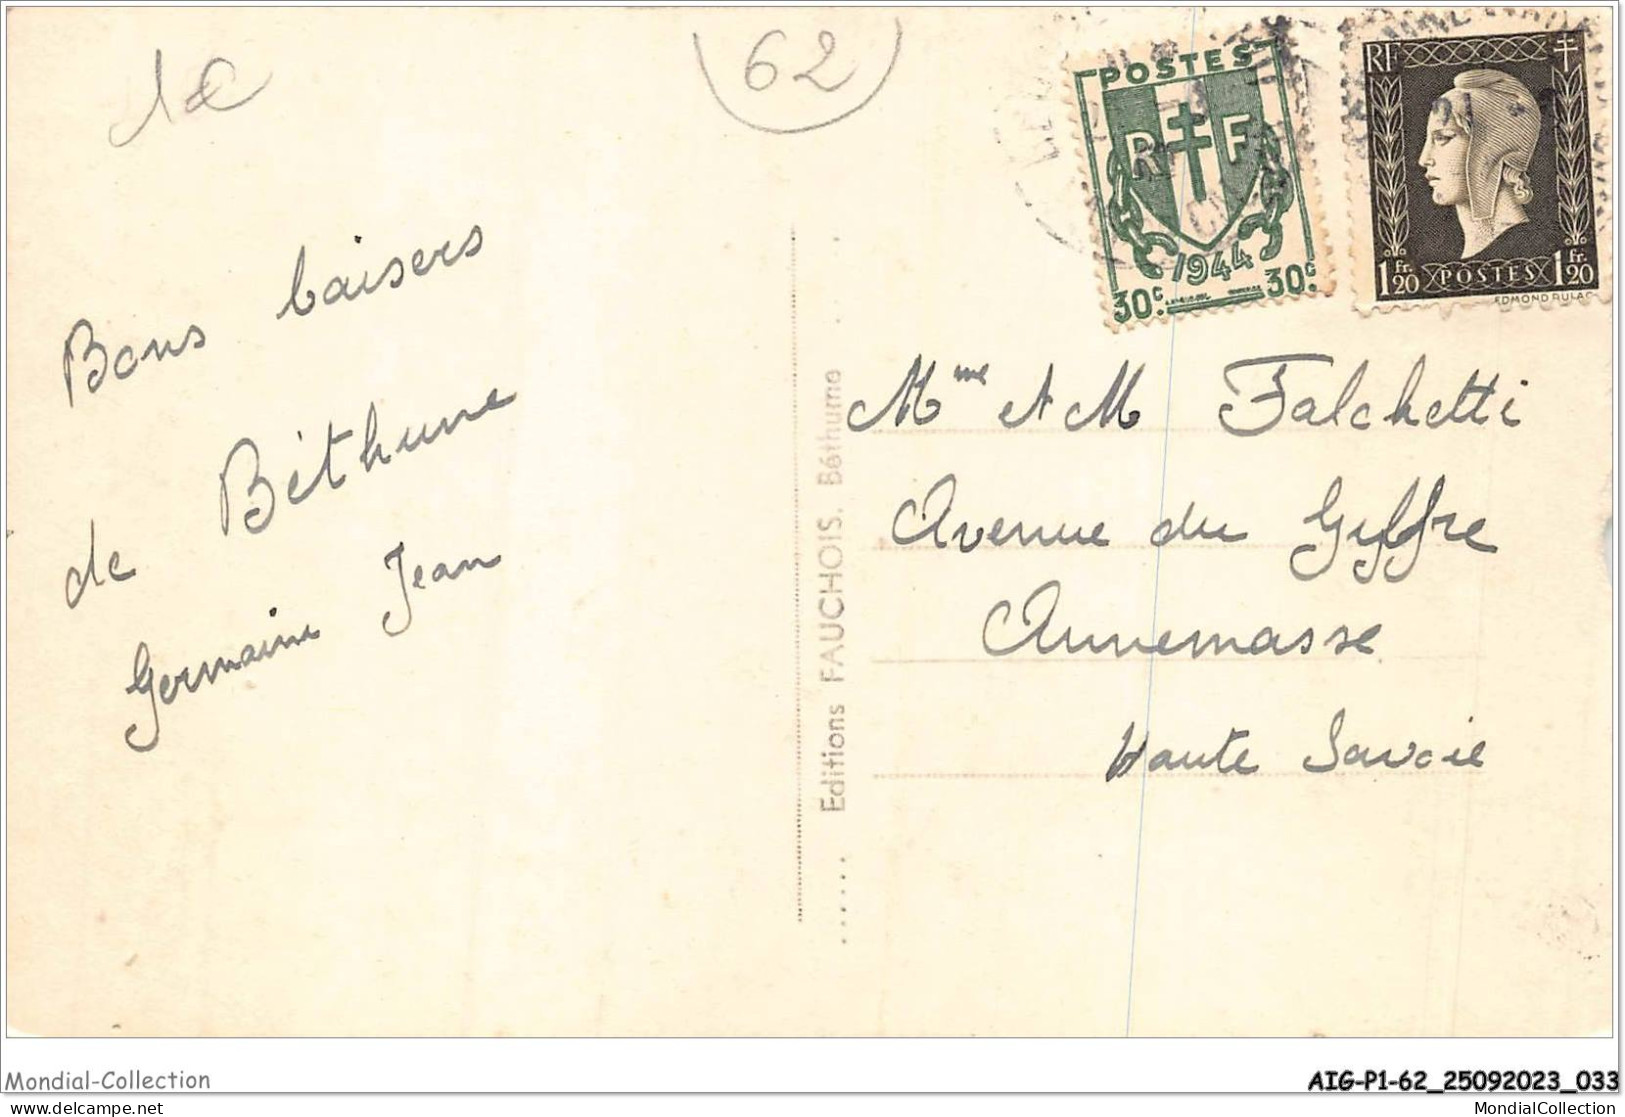 1€
62
POSTES
RF
1944
30c. 30c.
RF
1 Fr. 20 POSTES 1 Fr. 20
EDMOND DULAC
Bons baisers
de Béthune
Germaine Jean
Editions FAUCHOIS. Béthume
Mme et M Falchetti
Avenue du Giffre
Annemasse
Haute Savoie
Mondial-Collection
AIG-P1-62_25092023_033
delcampe.net
MondialCollection